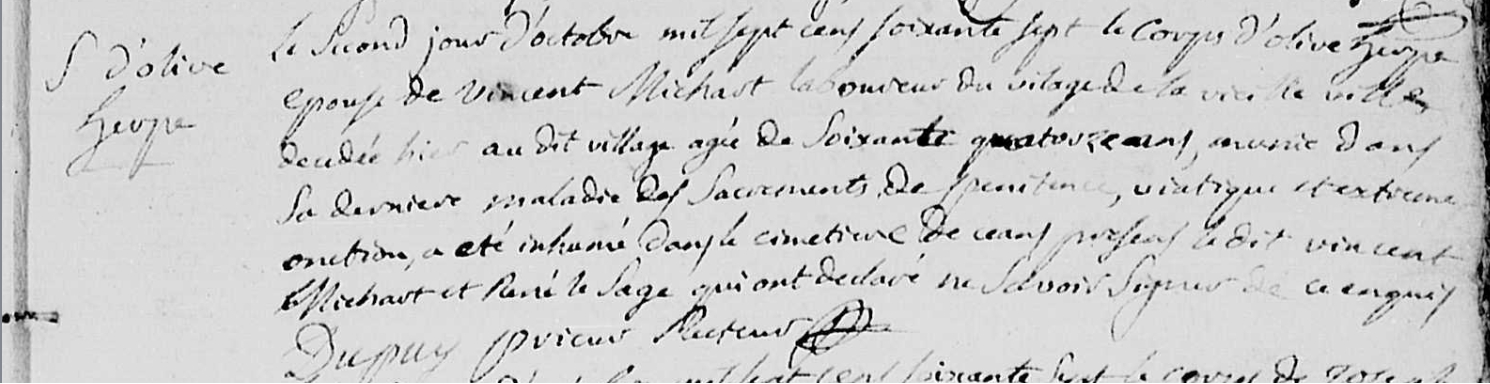 S d'olive
herpe
le second jour d'octobre mil sept cens soixante sept le corps d'olive herpe
epouse de Vincent Michart laboureur du vilage de la vieille ville
decedée hier au dit village agée de soixante quatorze ans, munie dans
sa derniere maladie des sacrements de penitence, viatique et extreme
onction, a eté inhumé dans le cimetiere de ceans presens le dit vincent
Michart et René le Sage qui ont declaré ne savoir signer de ce enquis
Dupuy prieur Recteur
mil sept cens soixante sept le corps de